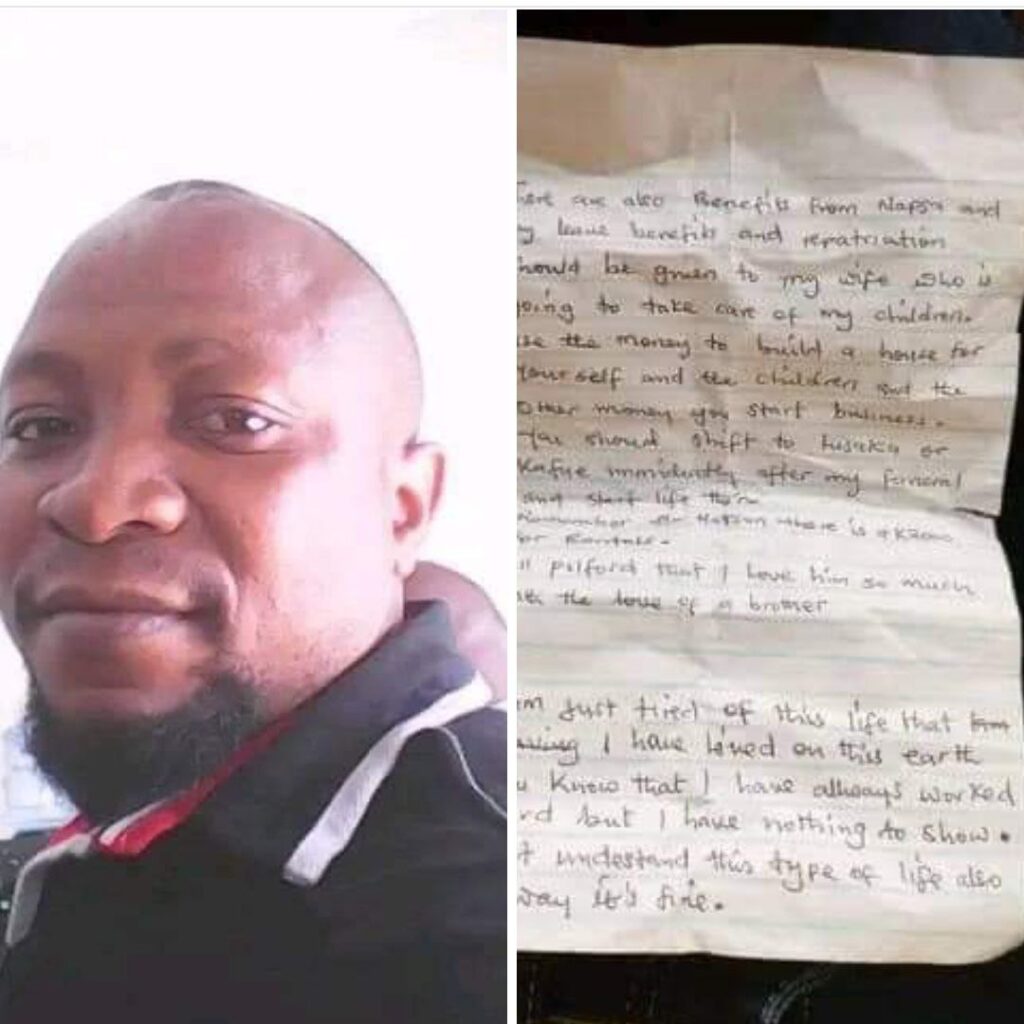 are also Benefits from Napsa and
leave benefits and repatriation
be given to my wife who is
to take care of my children.
the money to build a house for
yourself and the children and the
other money you start business.
You should shift to Lusaka or
Kafue immidiatly after my funeral
and start life there
Remember there is
for Rentals.
pilford that I love him so much
the love of a brother
just tired of this life that
I have lived on this earth
know that I have allways worked
but I have nothing to show.
undestand this type of life also
it's fine.